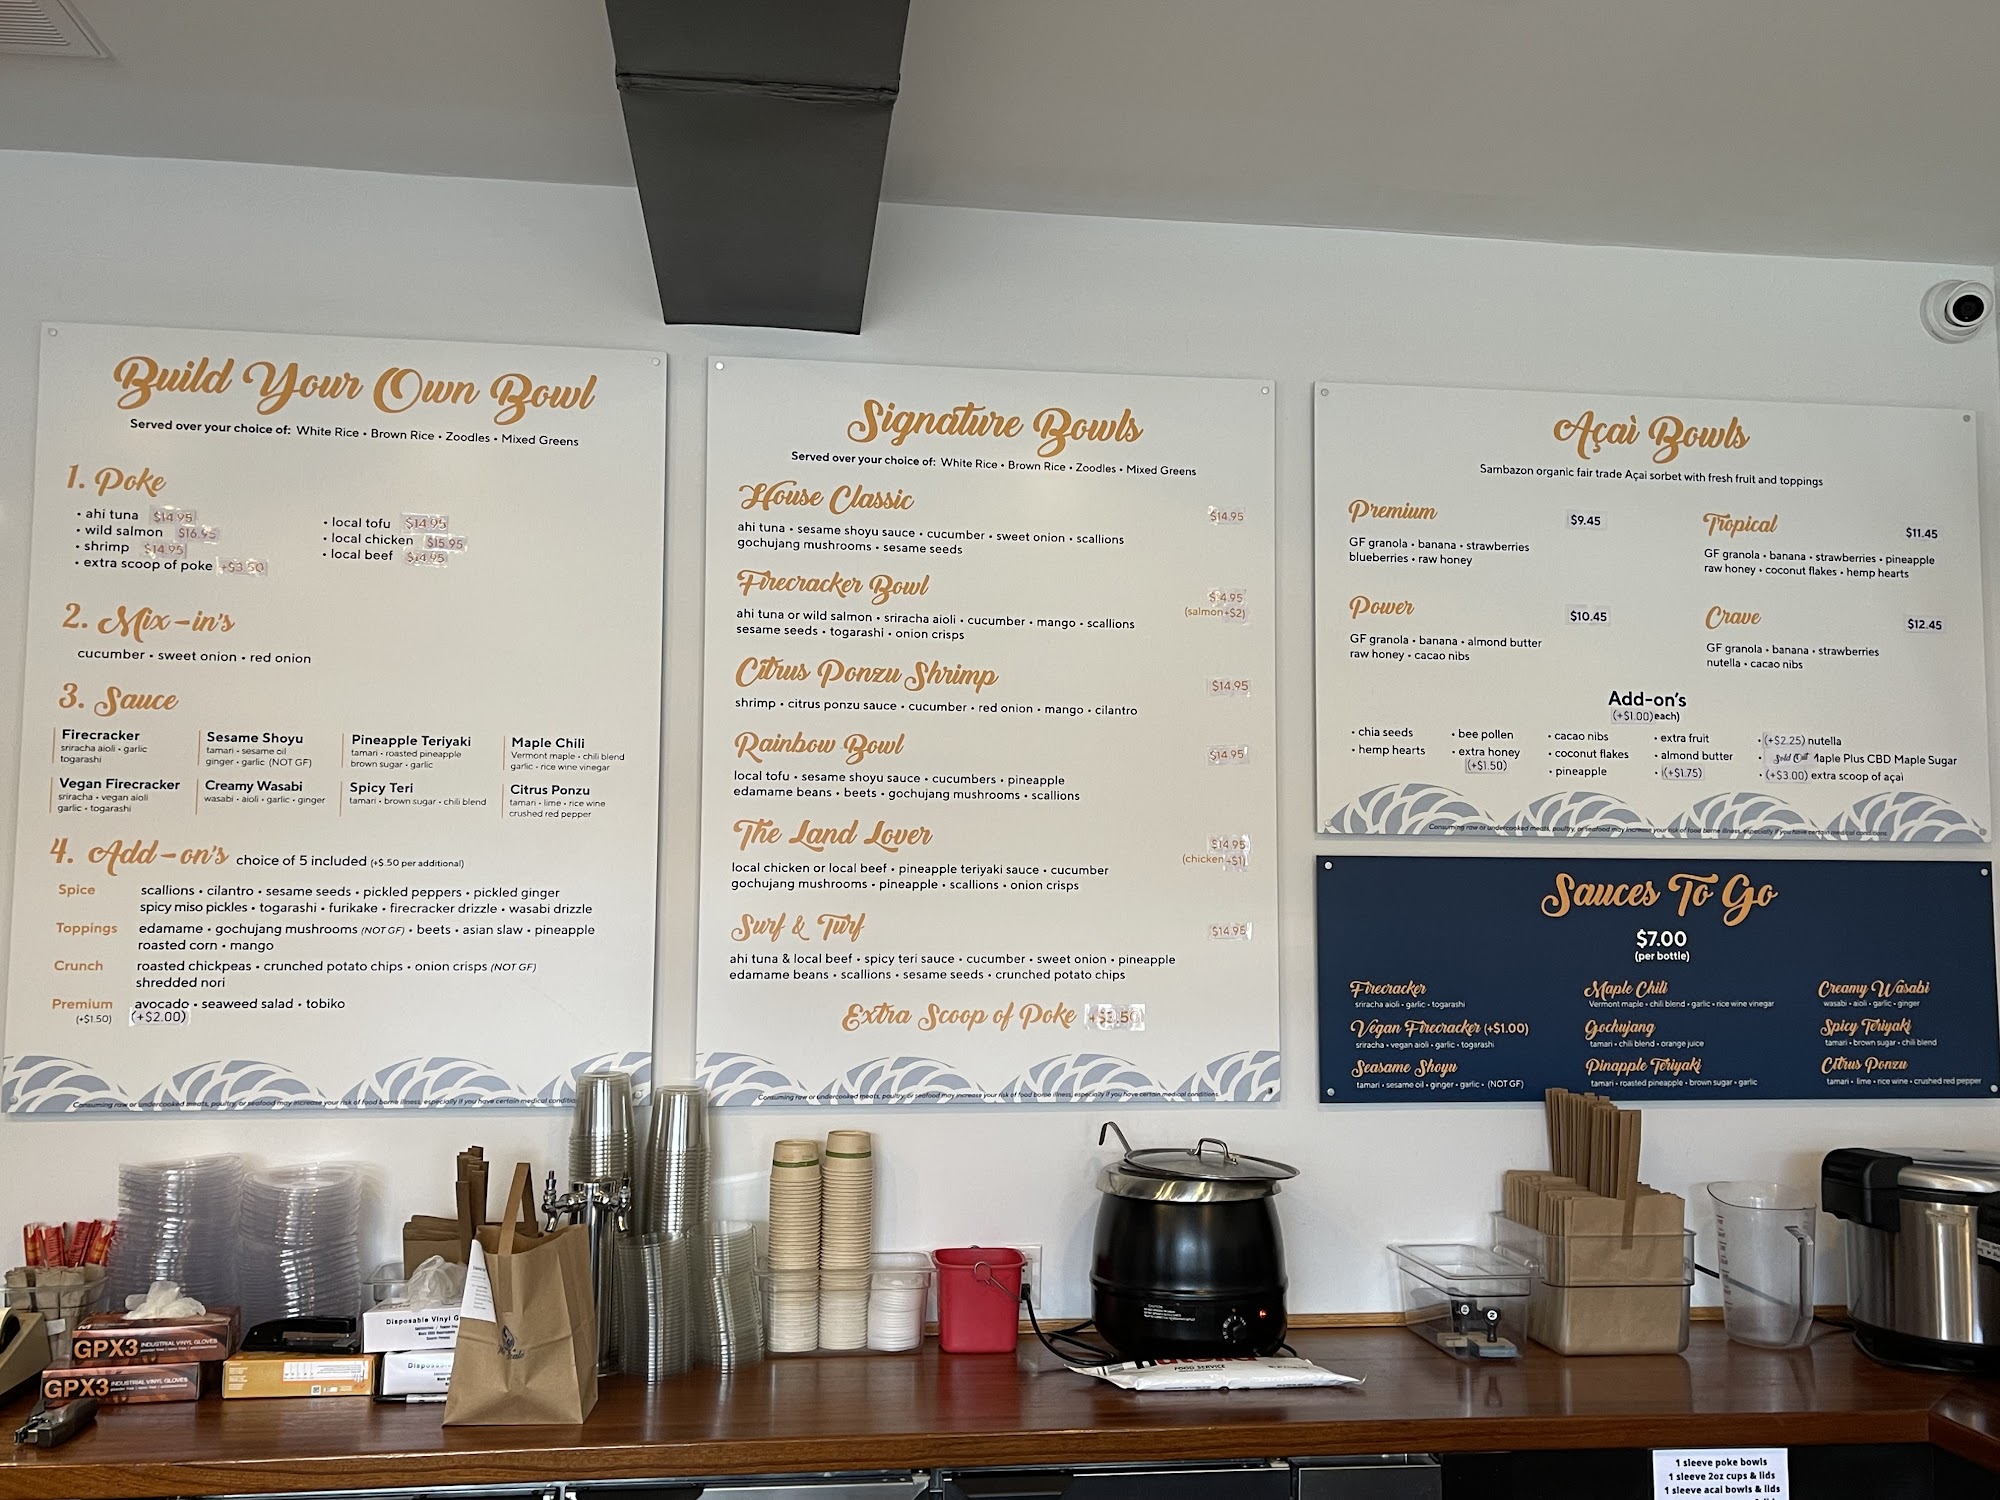 Build Your Own Bowl
Served over your choice of: White Rice • Brown Rice • Zoodles • Mixed Greens
1. Poke
• ahi tuna $14.95
• wild salmon $16.95
• shrimp $14.95
• extra scoop of poke +$3.50
• local tofu $14.95
• local chicken $15.95
• local beef $14.95
2. Mix-in's
cucumber • sweet onion • red onion
3. Sauce
Firecracker
sriracha aioli • garlic
togarashi
Sesame Shoyu
tamari • sesame oil
ginger • garlic (NOT GF)
Pineapple Teriyaki
tamari • roasted pineapple
brown sugar • garlic
Maple Chili
Vermont maple • chili blend
garlic • rice wine vinegar
Vegan Firecracker
sriracha • vegan aioli
garlic • togarashi
Creamy Wasabi
wasabi • aioli • garlic • ginger
Spicy Teri
tamari • brown sugar • chili blend
Citrus Ponzu
tamari • lime • rice wine
crushed red pepper
4. Add-on's choice of 5 included (+$.50 per additional)
Spice
scallions • cilantro • sesame seeds • pickled peppers • pickled ginger
spicy miso pickles • togarashi • furikake • firecracker drizzle • wasabi drizzle
Toppings
edamame • gochujang mushrooms (NOT GF) • beets • asian slaw • pineapple
roasted corn • mango
Crunch
roasted chickpeas • crunched potato chips • onion crisps (NOT GF)
shredded nori
Premium
(+$1.50)
avocado • seaweed salad • tobiko
(+$2.00)
Consuming raw or undercooked meats, poultry, or seafood may increase your risk of food borne illness, especially if you have certain medical
Signature Bowls
Served over your choice of: White Rice • Brown Rice • Zoodles • Mixed Greens
House Classic
$14.95
ahi tuna • sesame shoyu sauce • cucumber • sweet onion • scallions
gochujang mushrooms • sesame seeds
Firecracker Bowl
$14.95
(salmon+$2)
ahi tuna or wild salmon • sriracha aioli • cucumber • mango • scallions
sesame seeds • togarashi • onion crisps
Citrus Ponzu Shrimp
$14.95
shrimp • citrus ponzu sauce • cucumber • red onion • mango • cilantro
Rainbow Bowl
$14.95
local tofu • sesame shoyu sauce • cucumbers • pineapple
edamame beans • beets • gochujang mushrooms • scallions
The Land Lover
$14.95
(chicken +$1)
local chicken or local beef • pineapple teriyaki sauce • cucumber
gochujang mushrooms • pineapple • scallions • onion crisps
Surf & Turf
$14.95
ahi tuna & local beef • spicy teri sauce • cucumber • sweet onion • pineapple
edamame beans • scallions • sesame seeds • crunched potato chips
Extra Scoop of Poke +$3.50
Consuming raw or undercooked meats, poultry, or seafood may increase your risk of food borne illness, especially if you have certain medical conditions.
Açaì Bowls
Sambazon organic fair trade Açai sorbet with fresh fruit and toppings
Premium
$9.45
GF granola • banana • strawberries
blueberries • raw honey
Tropical
$11.45
GF granola • banana • strawberries • pineapple
raw honey • coconut flakes • hemp hearts
Power
$10.45
GF granola • banana • almond butter
raw honey • cacao nibs
Crave
$12.45
GF granola • banana • strawberries
nutella • cacao nibs
Add-on's
(+$1.00)each)
• chia seeds
• hemp hearts
• bee pollen
• extra honey
(+$1.50)
• cacao nibs
• coconut flakes
• pineapple
• extra fruit
• almond butter
• (+$1.75)
• (+$2.25) nutella
• Sold Out Maple Plus CBD Maple Sugar
• (+$3.00) extra scoop of açai
Consuming raw or undercooked meats, poultry, or seafood may increase your risk of food borne illness, especially if you have certain medical conditions.
Sauces To Go
$7.00
(per bottle)
Firecracker
sriracha aioli • garlic • togarashi
Maple Chili
Vermont maple • chili blend • garlic • rice wine vinegar
Creamy Wasabi
wasabi • aioli • garlic • ginger
Vegan Firecracker (+$1.00)
sriracha • vegan aioli • garlic • togarashi
Gochujang
tamari • chili blend • orange juice
Spicy Teriyaki
tamari • brown sugar • chili blend
Seasame Shoyu
tamari • sesame oil • ginger • garlic • (NOT GF)
Pinapple Teriyaki
tamari • roasted pineapple • brown sugar • garlic
Citrus Ponzu
tamari • lime • rice wine • crushed red pepper
GPX3 INDUSTRIAL VINYL GLOVES
GPX3 INDUSTRIAL VINYL GLOVES
Disposable Vinyl G
FOOD SERVICE
1 sleeve poke bowls
1 sleeve 2oz cups & lids
1 sleeve acai bowls & lids